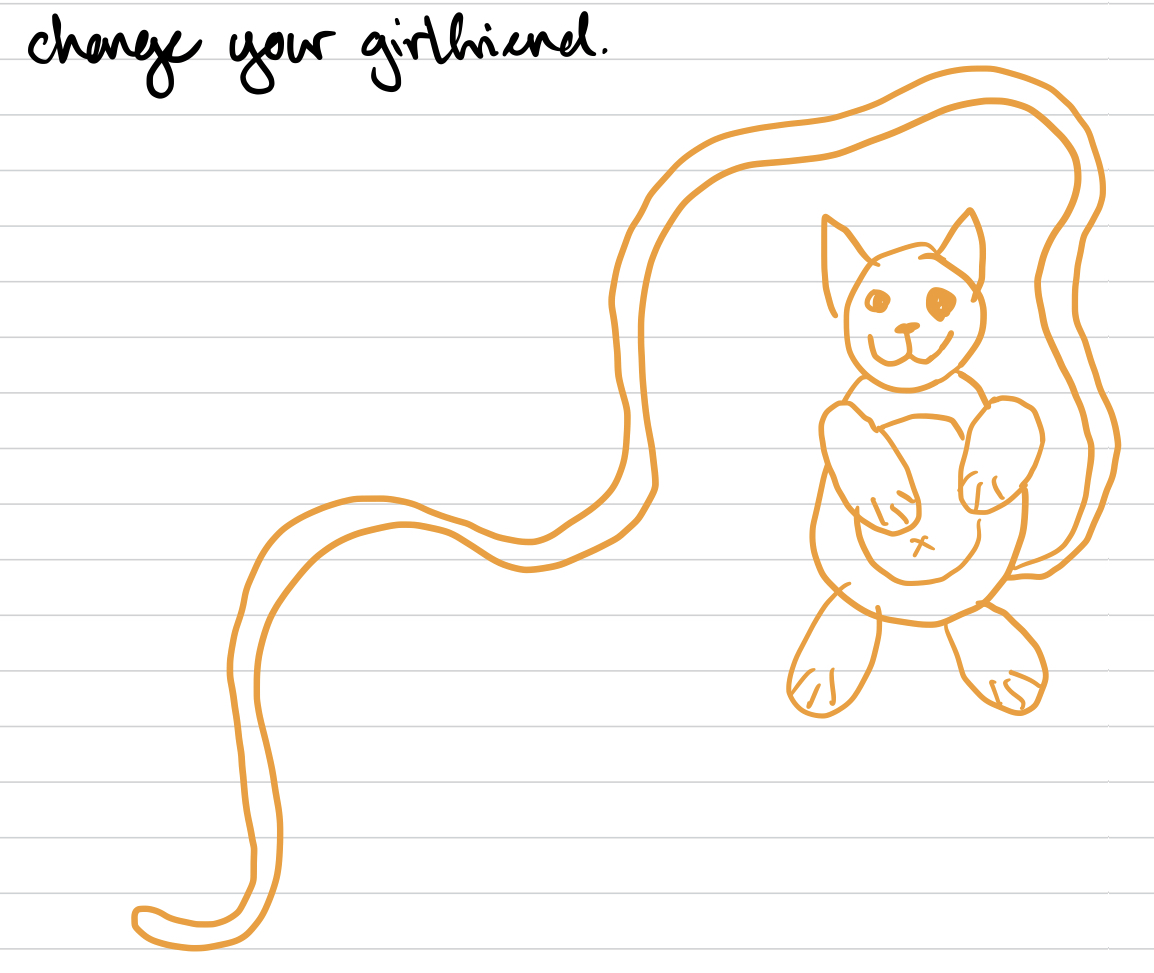 change your girlfriend.